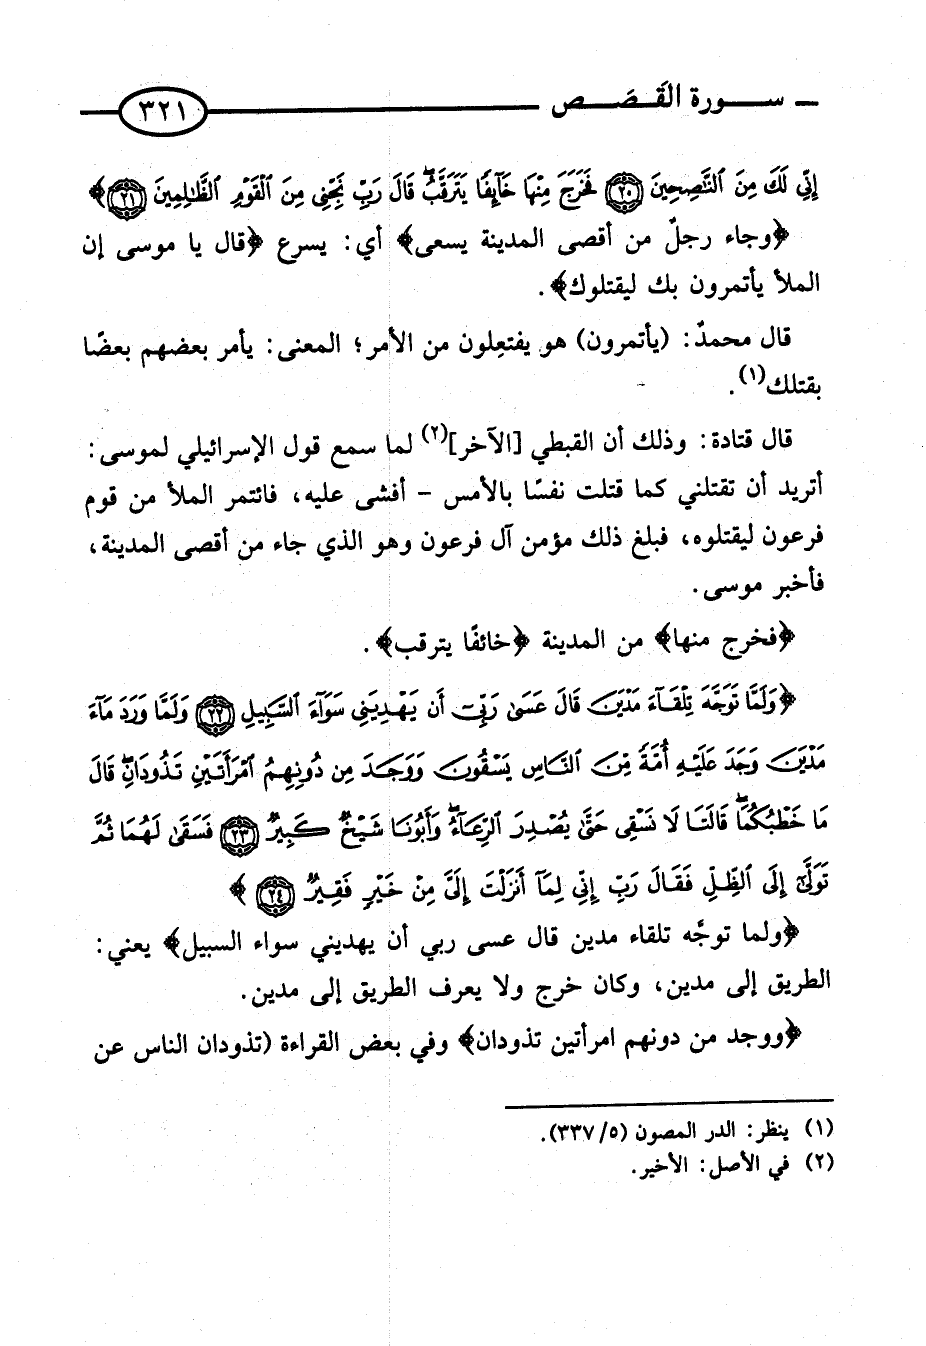 سورة القَصَص ٣٢١
إِنِّي لَكَ مِنَ ٱلنَّٰصِحِينَ ٢٠ فَخَرَجَ مِنْهَا خَآئِفًا يَتَرَقَّبُۖ قَالَ رَبِّ نَجِّنِي مِنَ ٱلْقَوْمِ ٱلظَّٰلِمِينَ ٢١﴾
﴿وجاء رجلٌ من أقصى المدينة يسعى﴾ أي: يسرع ﴿قال يا موسى إن
الملأ يأتمرون بك ليقتلوك﴾.
قال محمدٌ: (يأتمرون) هو يفتعِلون من الأمر؛ المعنى: يأمر بعضهم بعضًا
بقتلك(١).
قال قتادة: وذلك أن القبطي [الآخر](٢) لما سمع قول الإسرائيلي لموسى:
أتريد أن تقتلني كما قتلت نفسًا بالأمس - أفشى عليه، فائتمر الملأ من قوم
فرعون ليقتلوه، فبلغ ذلك مؤمن آل فرعون وهو الذي جاء من أقصى المدينة،
فأخبر موسى.
﴿فخرج منها﴾ من المدينة ﴿خائفًا يترقب﴾.
﴿وَلَمَّا تَوَجَّهَ تِلْقَآءَ مَدْيَنَ قَالَ عَسَىٰ رَبِّيٓ أَن يَهْدِيَنِي سَوَآءَ ٱلسَّبِيلِ ٢٢ وَلَمَّا وَرَدَ مَآءَ
مَدْيَنَ وَجَدَ عَلَيْهِ أُمَّةً مِّنَ ٱلنَّاسِ يَسْقُونَ وَوَجَدَ مِن دُونِهِمُ ٱمْرَأَتَيْنِ تَذُودَانِۖ قَالَ
مَا خَطْبُكُمَاۖ قَالَتَا لَا نَسْقِي حَتَّىٰ يُصْدِرَ ٱلرِّعَآءُۖ وَأَبُونَا شَيْخٌ كَبِيرٌ ٢٣ فَسَقَىٰ لَهُمَا ثُمَّ
تَوَلَّىٰٓ إِلَى ٱلظِّلِّ فَقَالَ رَبِّ إِنِّي لِمَآ أَنزَلْتَ إِلَيَّ مِنْ خَيْرٍ فَقِيرٌ ٢٤﴾
﴿ولما توجَّه تلقاء مدين قال عسى ربي أن يهديني سواء السبيل﴾ يعني:
الطريق إلى مدين، وكان خرج ولا يعرف الطريق إلى مدين.
﴿ووجد من دونهم امرأتين تذودان﴾ وفي بعض القراءة (تذودان الناس عن
(١) ينظر: الدر المصون (٥/ ٣٣٧).
(٢) في الأصل: الأخير.